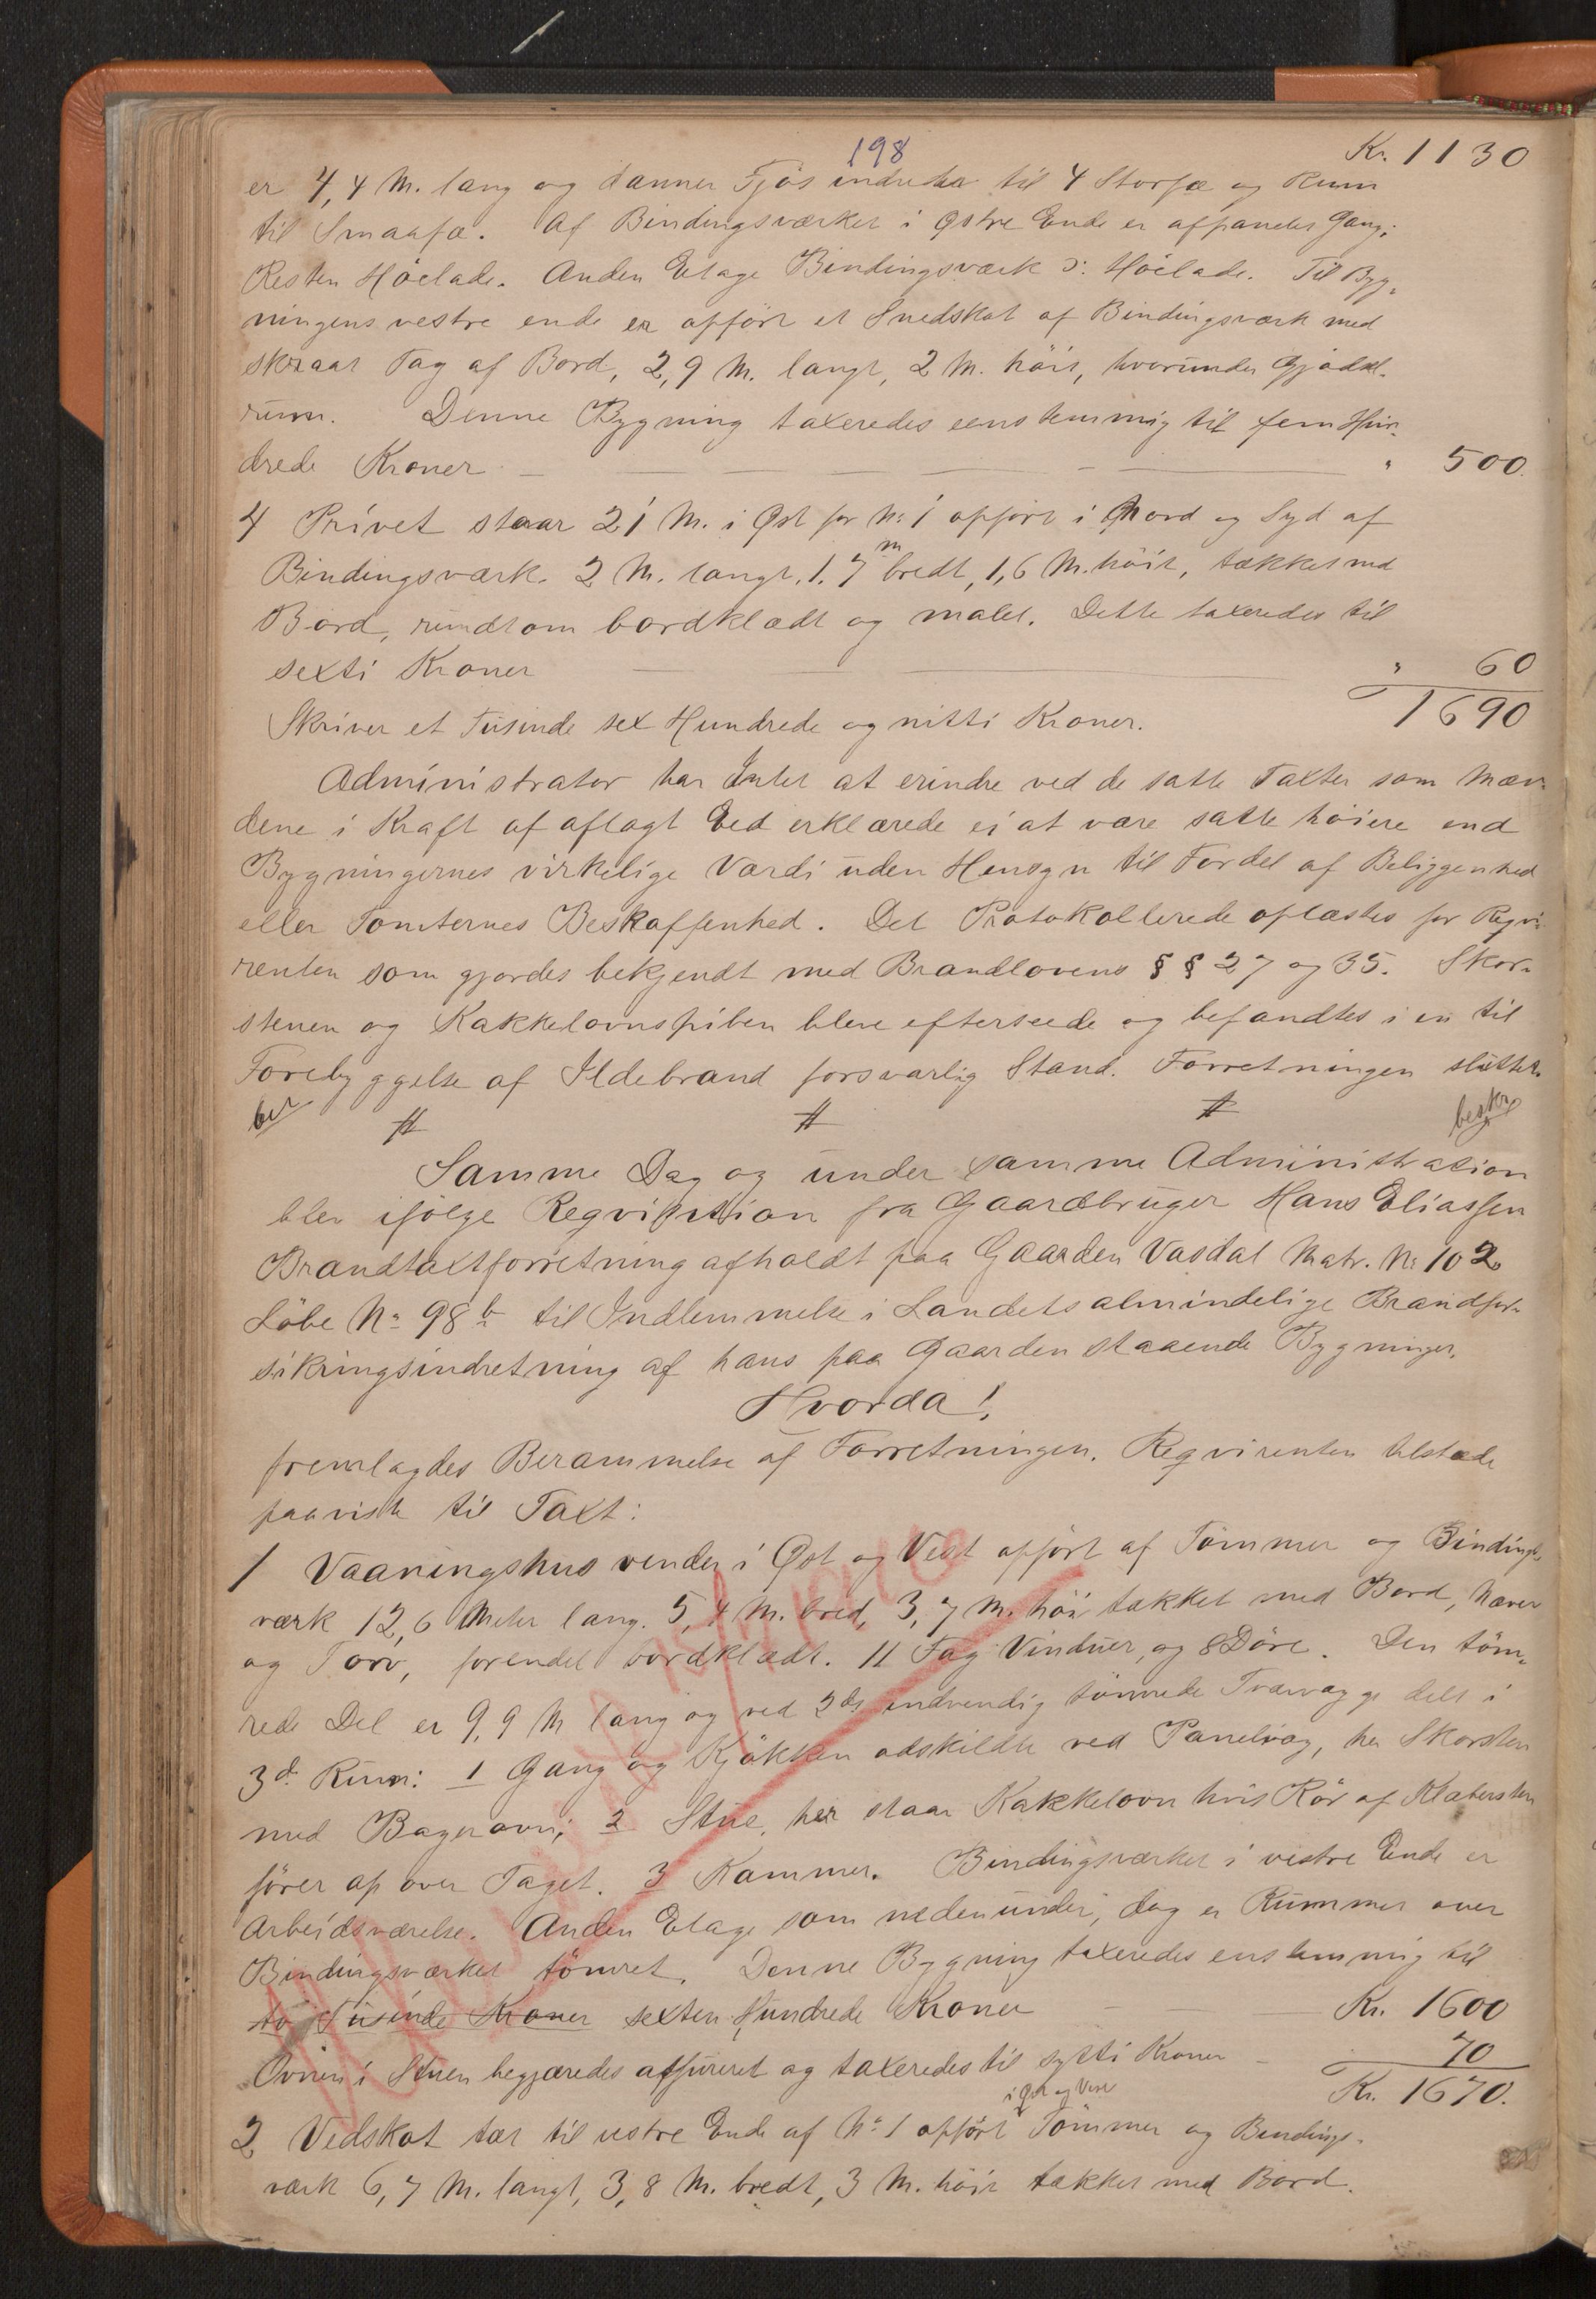 198
Kr. 1130
er 4,4 M. lang og danner Fjös indrettet til 4 Storfæ og Rum
til Smaafæ. Af Bindingsværket i Østre Ende er afpanelet Gang;
Resten Höelade. Anden Etage Bindingsværk ɔ: Höelade. Til Byg-
ningens vestre ende er opfört et Snedskot af Bindingsværk med
skraat Tag af Bord, 2,9 M. langt, 2 M. höit, hvorunder Gjödsel-
rum. Denne Bygning taxeredes eenstemmig til fem Hun-
drede Kroner — " 500.
4 Privet staar 21 M. i Øst for No 1 opfört i Nord og Syd af
Bindingsværk. 2 M. langt, 1.7 m bredt, 1,6 M. höit, tækket med
Bord, rundtom bordklædt og malet. Dette taxeredes til
sexti Kroner — " 60
Skriver et Tusinde sex Hundrede og nitti Kroner. 1690
Administrator har Intet at erindre ved de satte Taxter som Mæn-
dene i Kraft af aflagt Eed erklærede ei at være satte höiere end
Bygningernes virkelige Værdi uden Hensyn til Fordel af Beliggenhed
eller Tomternes Beskaffenhed. Det Protokollerede oplæstes for Reqvi-
renten som gjordes bekjendt med Brandlovens § § 27 og 35. Skor-
stenen og Kakkelovnspiben bleve efterseede og befandtes i en til
Forebyggelse af Ildebrand forsvarlig Stand. Forretningen sluttet.
beskr
Samme Dag og under samme Administration
blev ifölge Reqvisition fra Gaardbruger Hans Eliassen
Brandtaxtforretning afholdt paa Gaarden Vasdal Matr. No 102
Löbe No 98 b til Indlemmelse i Landets almindelige Brandfor-
sikringsindretning af hans paa Gaarden staaende Bygninger.
Hvorda!
fremlagdes Berammelse af Forretningen. Reqvirenten tilstæde
paaviste til Taxt:
1 Vaaningshus vender i Øst og Vest opfört af Tömmer og Bindings-
værk 12,6 Meter lang. 5,4 M. bred, 3,7 M. höi tækket med Bord, Næver
og Torv, forendel bordklædt. 11 Fag Vinduer, og 8 Döre. Den töm-
rede Del er 9,9 M lang og ved 2de indvendig tömrede Tværvægge delt i
3de Rum: 1 Gang og Kjökken adskildte ved Panelvæg, her Skorsten
med Bagerovn; 2 Stue, her staar Kakkelovn hvis Rör af Klæbersten
förer op over Taget. 3 Kammer. Bindingsværket i vestre Ende er
Arbeidsværelse. Anden Etage som nedenunder, dog er Rummet over
Bindingsværket tömret. Denne Bygning taxeredes enstemmig til
to Tusinde Kroner sexten Hundrede Kroner — Kr. 1600
Ovnen i Stuen begjæredes assureret og taxeredes til sytti Kroner — 70
Kr. 1670.
i Øst og Vest
2 Vedskot tæt til vestre Ende af No 1 opfört Tömmer og Bindings-
værk 6,7 M. langt, 3,8 M. bredt, 3 M. höit tækket med Bord.